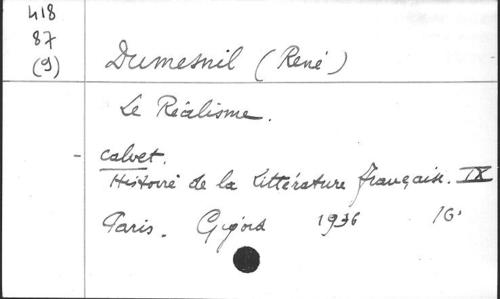 418
87
(9)
Dumesnil (René)
Le Réalisme.
Calvet.
Histoire de la littérature française. IX
Paris. Gigord 1936 16°